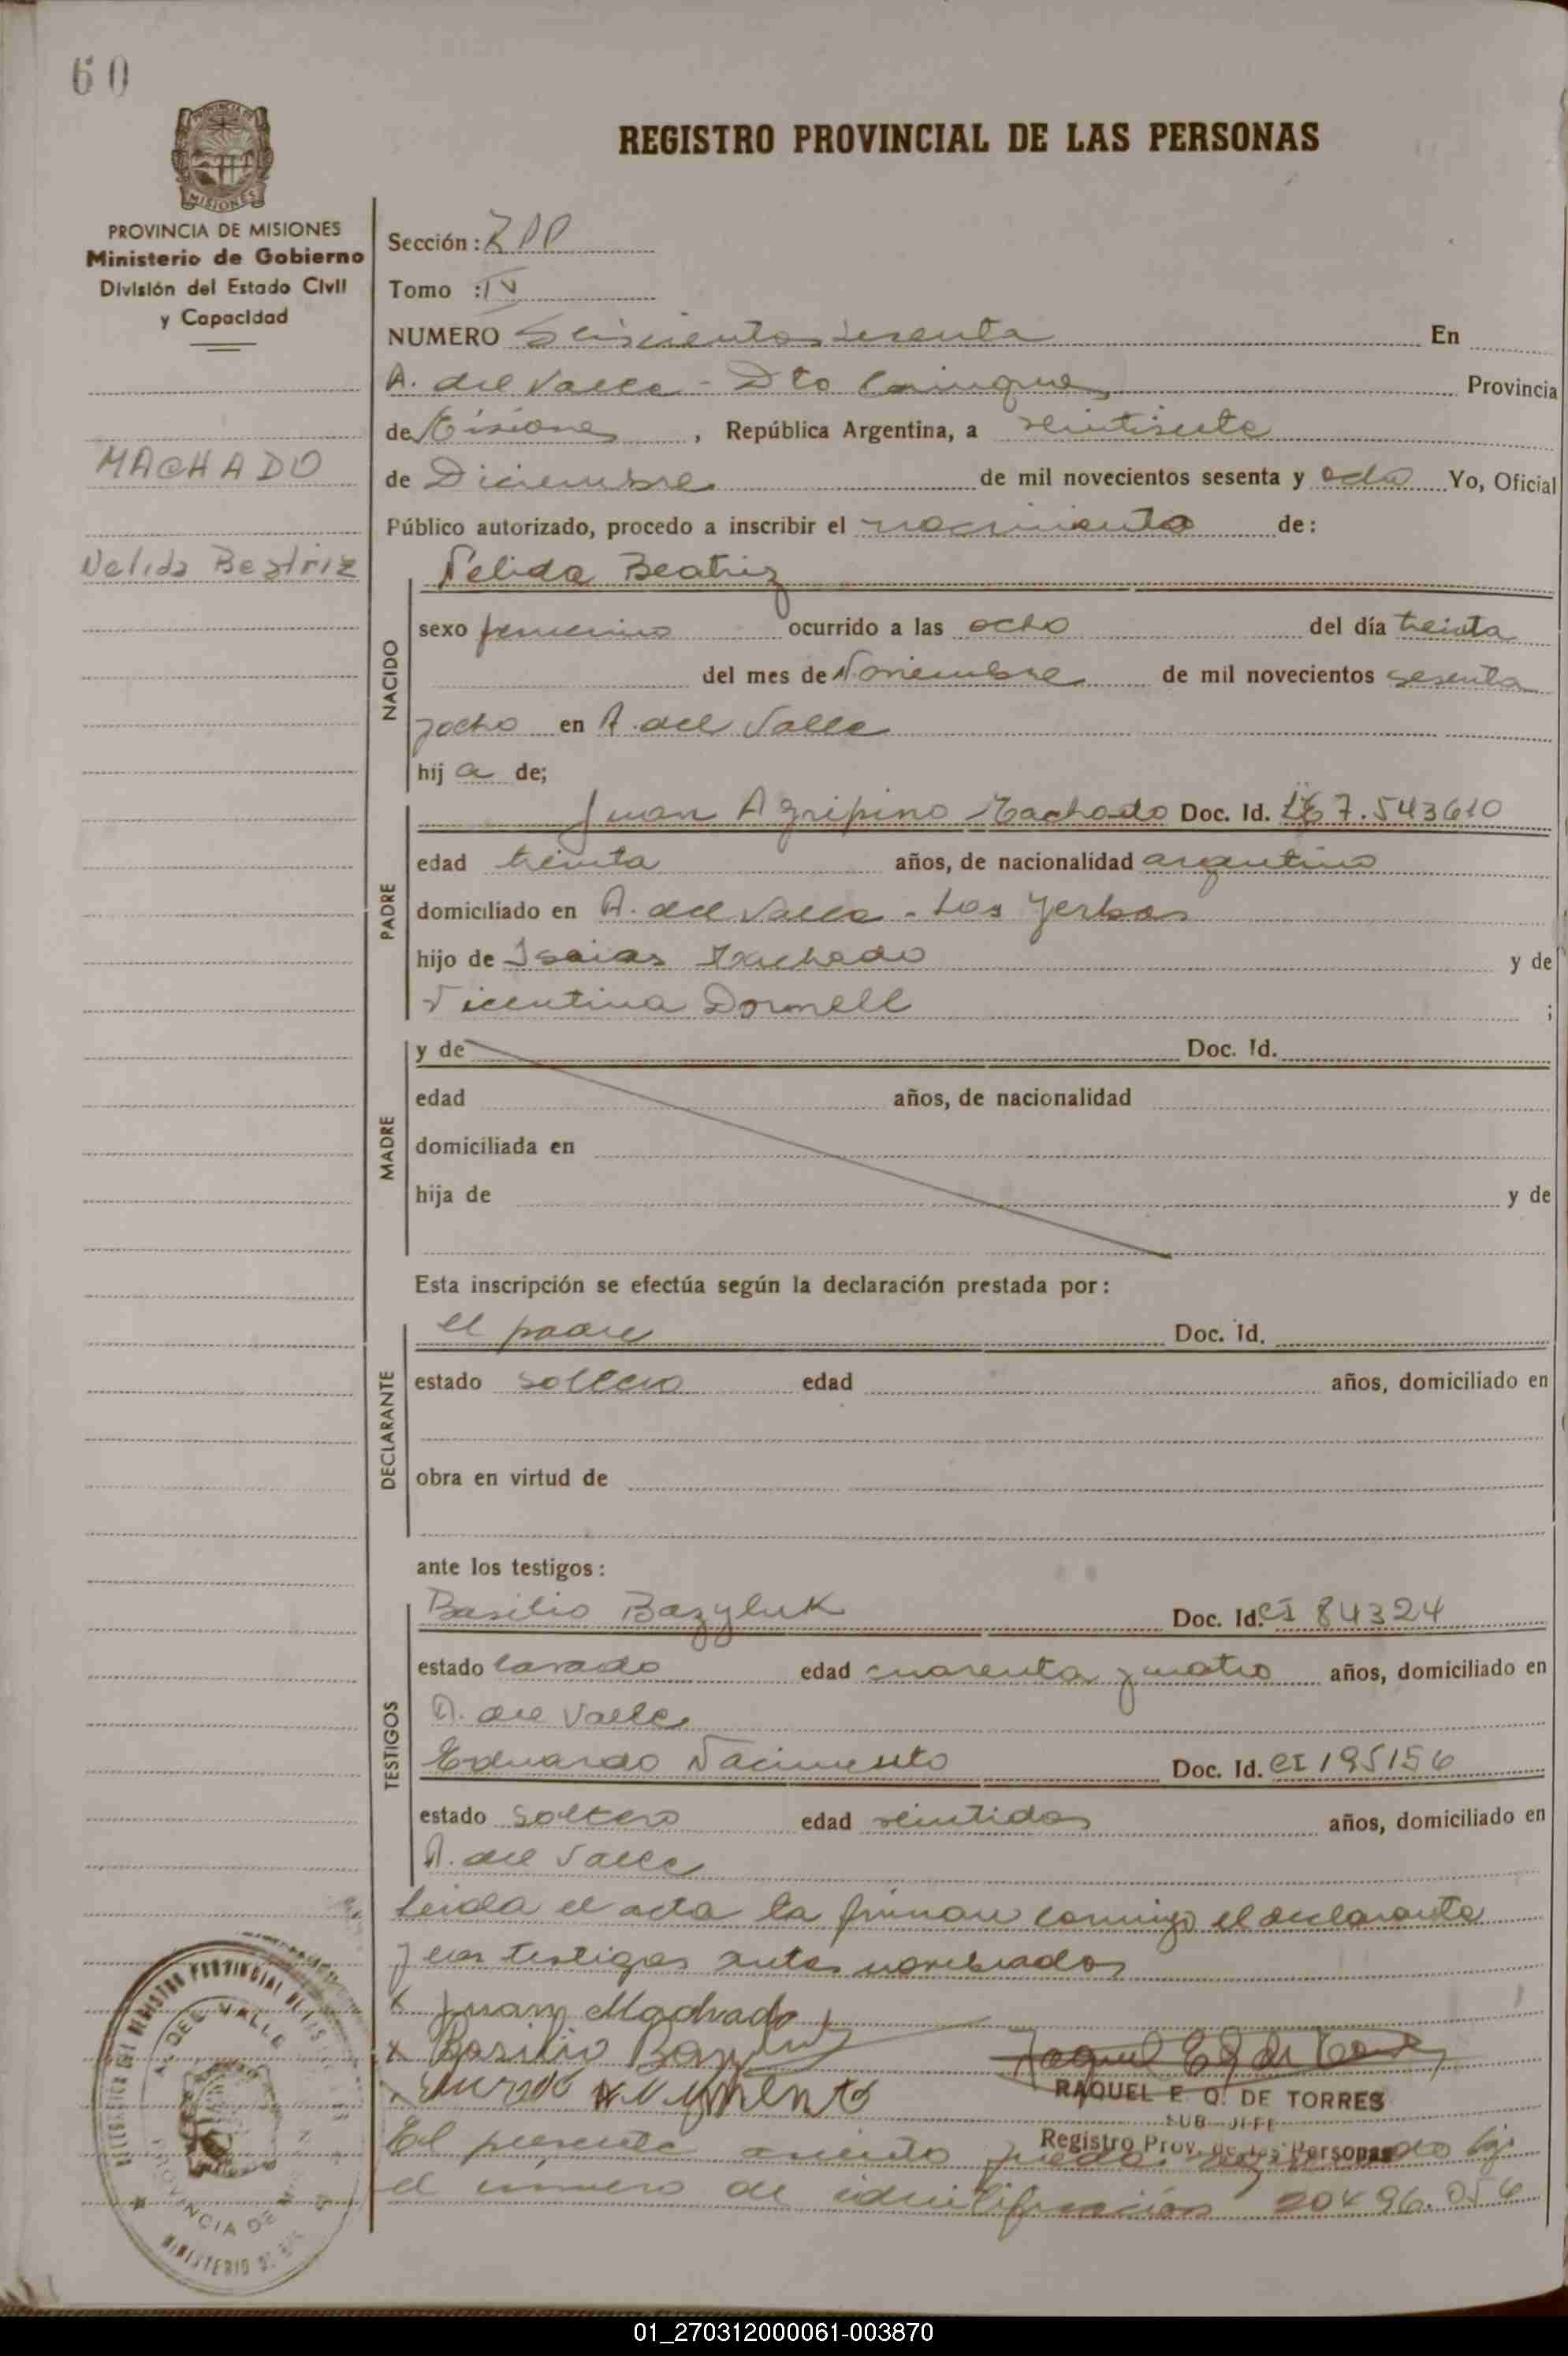 60
REGISTRO PROVINCIAL DE LAS PERSONAS
PROVINCIA DE MISIONES
Ministerio de Gobierno
División del Estado Civil
y Capacidad
MACHADO
Nelida Beatriz
Sección:
Tomo : IV
NUMERO Seiscientos sesenta En
A. del Valle - Dto Cainguas Provincia
de Misiones, República Argentina, a veintisiete
de Diciembre de mil novecientos sesenta y ocho Yo, Oficial
Público autorizado, procedo a inscribir el nacimiento de:
NACIDO
Nelida Beatriz
sexo femenino ocurrido a las ocho del día treinta
del mes de Noviembre de mil novecientos sesenta
y ocho en A. del Valle
hij a de;
PADRE
Juan Agripino Machado Doc. Id. 7.543610
edad treinta años, de nacionalidad argentino
domiciliado en A. del Valle - Las Yerbas
hijo de Isaias Machado y de
Vicentina Dornell ;
MADRE
y de Doc. Id.
edad años, de nacionalidad
domiciliada en
hija de y de
Esta inscripción se efectúa según la declaración prestada por:
DECLARANTE
el padre Doc. Id.
estado soltero edad años, domiciliado en
obra en virtud de
ante los testigos:
TESTIGOS
Basilio Bazyluk Doc. Id. CI 84324
estado casado edad cuarenta y cuatro años, domiciliado en
A. del Valle
Eduardo Nacimento Doc. Id. CI 195156
estado soltero edad veintidos años, domiciliado en
A. del Valle
Leida el acta la firman conmigo el declarante
y los testigos antes nombrados
x Juan Machado
x Basilio
RAQUEL E. Q. DE TORRES
SUB-JEFE
Registro Prov. de las Personas
El presente asiento queda bajo
el número de identificación 20496.056
REGISTRO PROVINCIAL DE LAS
A. DEL VALLE
PROVINCIA DE
MINISTERIO DE
01_270312000061-003870